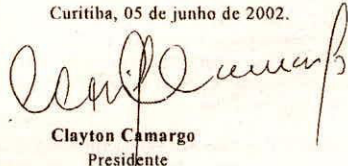 Curitiba, 05 de junho de 2002.
Clayton Camargo
Presidente